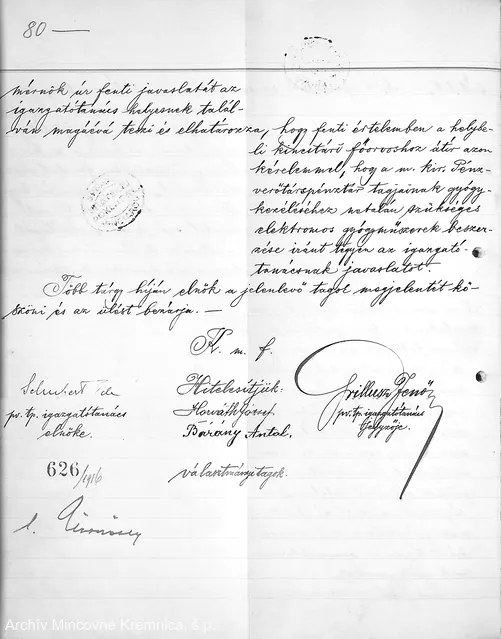 80 —
mérnök úr fenti javaslatát az
igazgatótanács helyesnek talál-
ván magáévá teszi és elhatározza, hogy fenti értelemben a helybe-
li kincstári főorvoshoz átír azon
kérelemmel, hogy a m. kir. Pénz-
verőtárspénztár tagjainak gyógy-
kezeléséhez netalán szükséges
elektromos gyógyműszerek beszer-
zése iránt tegyen az igazgató-
tanácsnak javaslatot.
Több tárgy híján elnök a jelenlevő tagok megjelentét kö-
szöni és az ülést bezárja. —
K. m. f.
Schubert
pv. tp. igazgatótanács
elnöke.
Hitelesítjük:
Horváth József
Bárány Antal.
választmányi tagok.
Grillusz Jenő
pv. tp. igazgatótanács
jegyzője.
626/1916
Archív Mincovne Kremnica, š.p.